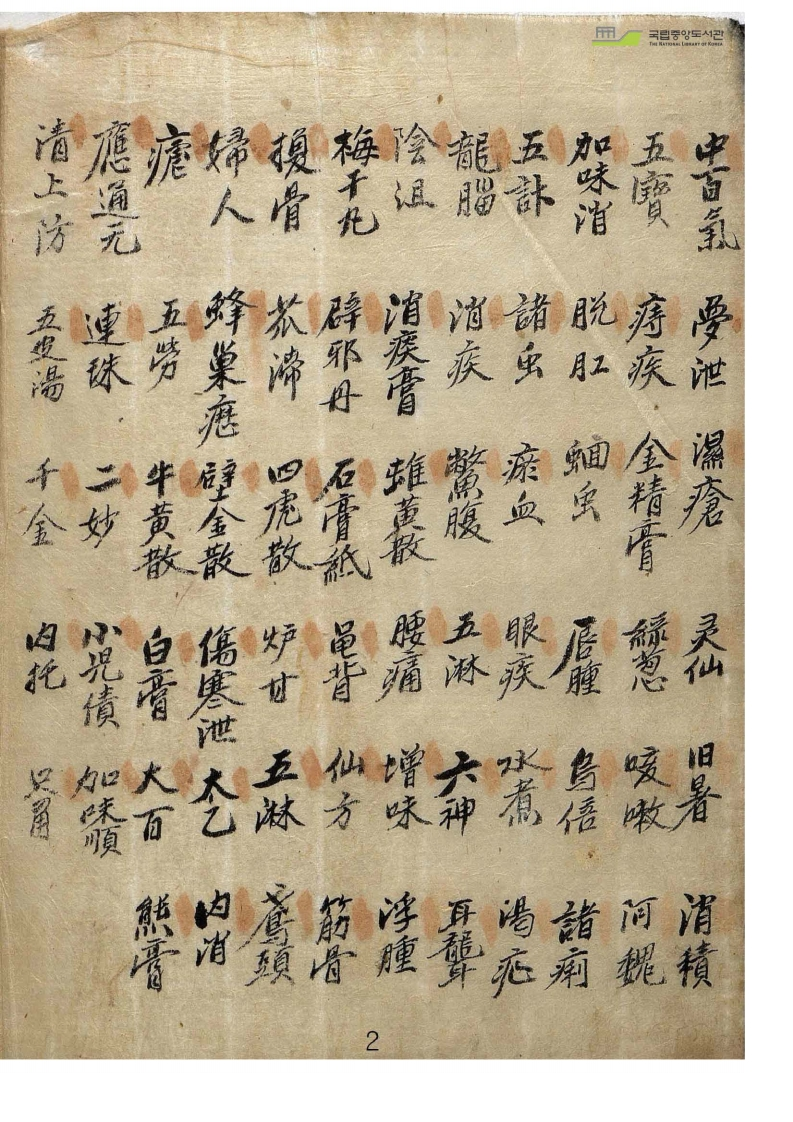 국립중앙도서관
THE NATIONAL LIBRARY OF KOREA
中百氣 夢泄 濕瘡 灵仙 旧暑 消積
五寶 痔疾 金精膏 綠葱 咳嗽 阿魏
加味消 脱肛 蛔虫 唇腫 烏倍 諸痢
五 諸虫 瘀血 眼疾 水煮 渴疟
龍腦 消疾 鱉腹 五淋 六神 耳聾
陰沮 消痰膏 雄黃散 腰痛 增味 浮腫
梅干丸 辟邪丹 石膏紙 黽背 仙方 筋骨
換骨 滯 四虎散 炉甘 五淋 頭
婦人 蜂巢 壁金散 傷寒泄 太乙 内消
瘧 五勞 牛黃散 白膏 大百 熊膏
應通元 連珠 二妙 小児債 加味順
清上防 五湯 千金 内托
2